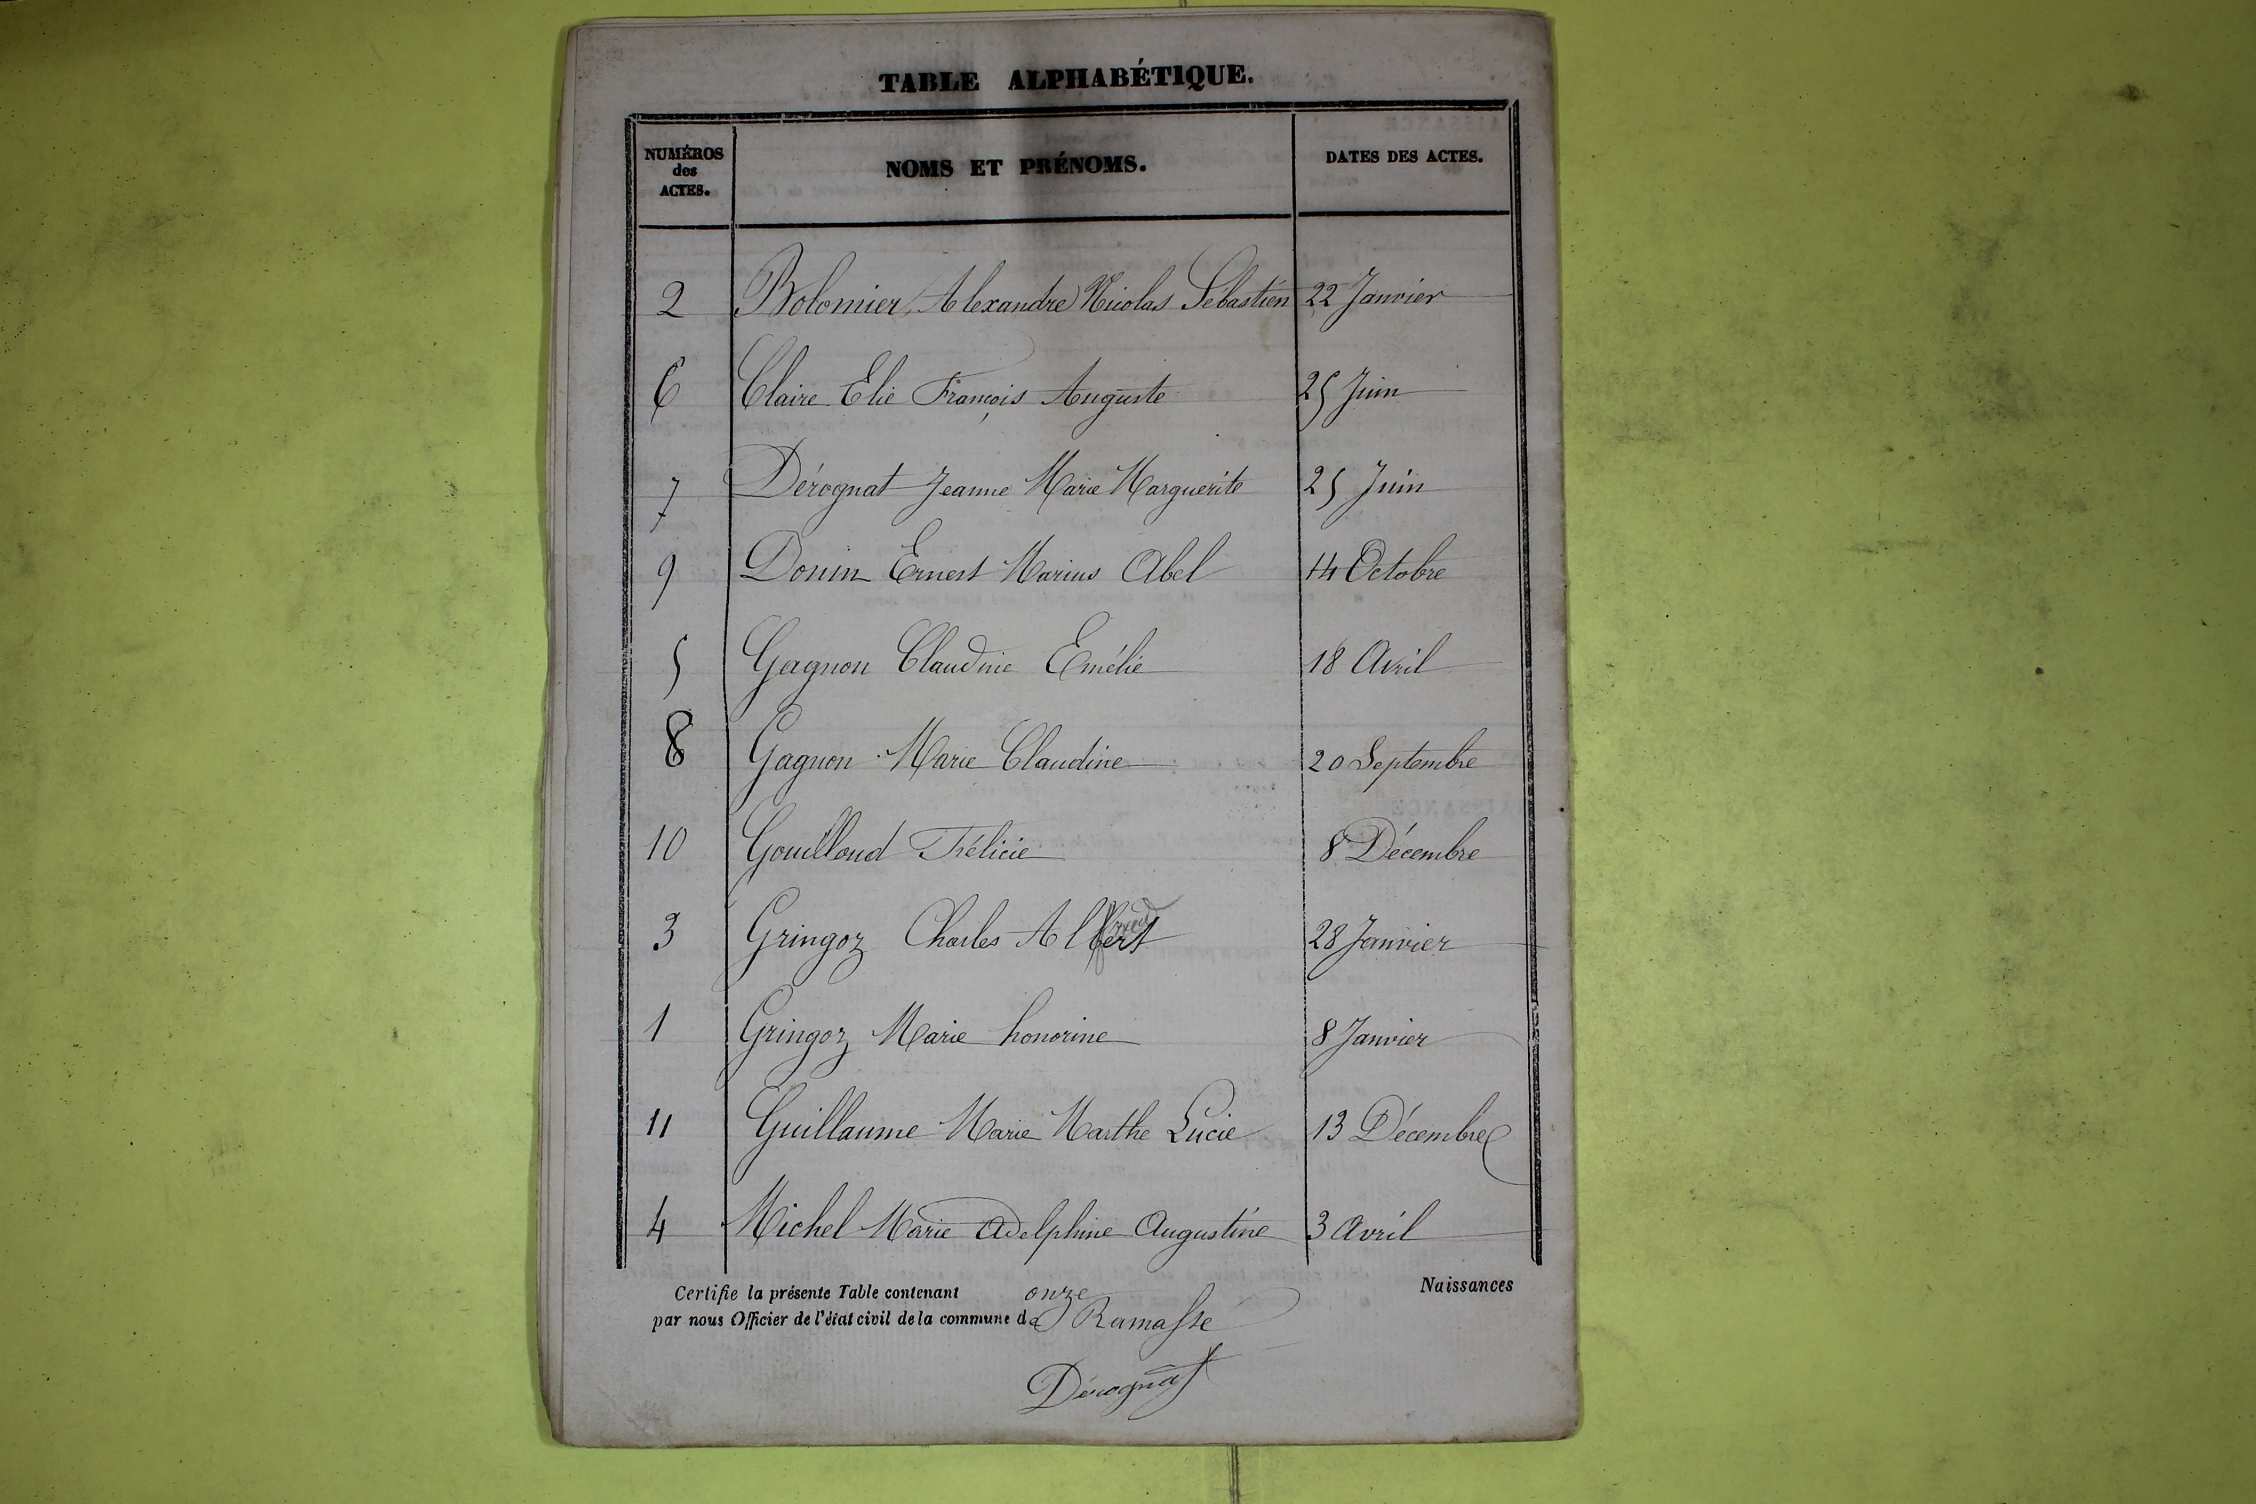 TABLE ALPHABÉTIQUE.
NUMÉROS des ACTES. NOMS ET PRÉNOMS. DATES DES ACTES.
2 Bolomier, Alexandre Nicolas Sébastien 22 Janvier
6 Claire Elie François Auguste 25 Juin
7 Dérognat Jeanne Marie Marguerite 25 Juin
9 Donin Ernest Marius Abel 14 Octobre
5 Gagnon Claudine Emélie 18 Avril
8 Gagnon Marie Claudine 20 Septembre
10 Gouilloud Félicie 8 Décembre
3 Gringoz Charles Albert 28 Janvier
1 Gringoz Marie honorine 8 Janvier
11 Guillaume Marie Marthe Lucie 13 Décembre
4 Michel Marie Adelphine Augustine 3 Avril
Certifie la présente Table contenant onze Naissances
par nous Officier de l'état civil de la commune de Ramasse
Dérognat